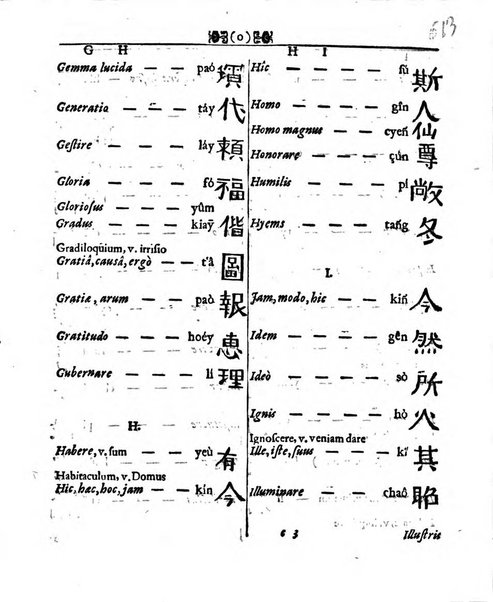 613
(o)
G H
Gemma lucida — — paò 瓆
Generatio — — táy 代
Geſtire — — — láy 賴
Gloria — — — fó 福
Glorioſus — — — yûm
Gradus — — — kiaȳ 偕
Gradiloqũium, v. irriſio
Gratiâ, cauſâ, ergò — t'û 圖
Gratiæ, arum — — paò 報
Gratitudo — — — hoéy 恵
Gubernare — — — lí 理
H.
Habere, v. ſum — — yeù 有
Habitaculum, v. Domus
Hic, hæc, hoc, jam — — kin 今
H I
Hic — — — — ſũ 斯
Homo — — — — gîn 人
Homo magnus — — — cyeñ 仙
Honorare — — — çún 尊
Humilis — — — — pí 敞
Hyems — — — — tañg 冬
I.
Jam, modo, hic — — kiñ 今
Idem — — — — gên 然
Ideò — — — — sò 所
Ignis — — — — hò 火
Ignoſcere, v. veniam dare
Ille, iſte, ſuus — — — kí 其
Illuminare — — — chaû
6 3
Illuſtris